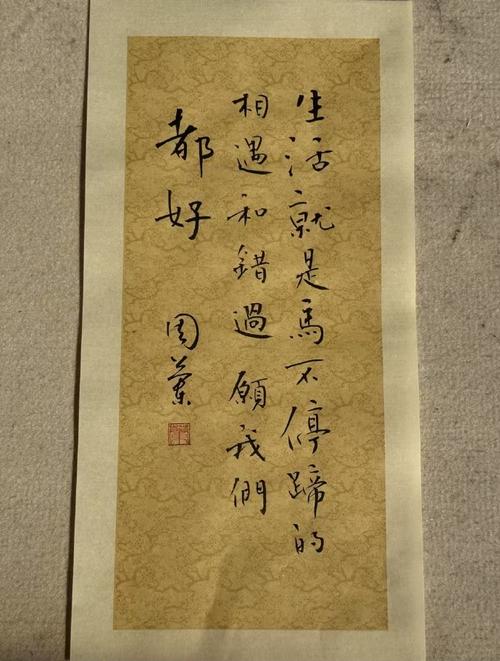 生活就是馬不停蹄的
相遇和錯過願我們
都好
周蘭